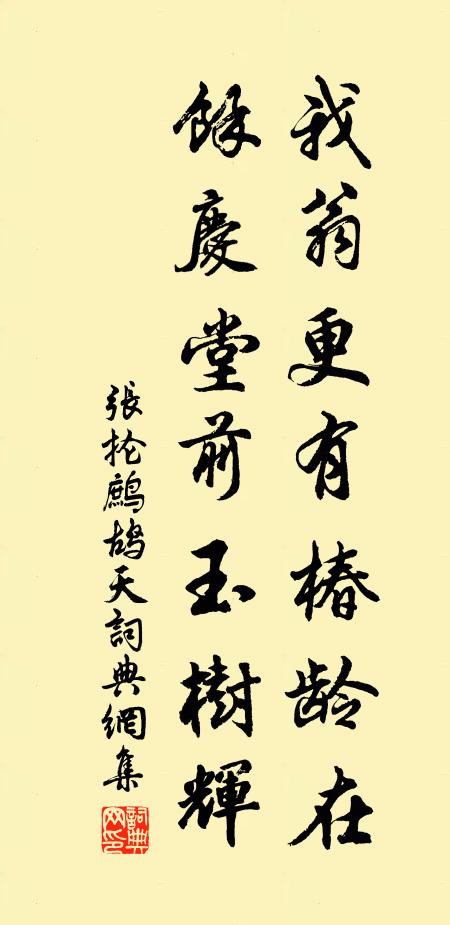 我翁更有椿龄在
餘慶堂前玉樹輝
張抡鷓鴣天詞典網集
詞典網印